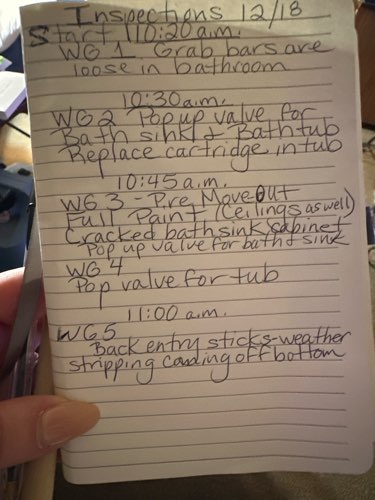 Inspections 12/18
Start 10:20 a.m.
WG 1 Grab bars are
loose in bathroom
10:30 a.m.
WG 2 Pop up valve for
Bath sink + Bathtub
Replace cartridge in tub
10:45 a.m.
WG 3 - Pre Move Out
Full Paint (Ceilings as well)
Cracked bath sink, cabinet,
Pop up valve for bath & sink
WG 4
Pop valve for tub
11:00 a.m.
WG 5
Back entry sticks - weather
stripping coming off bottom